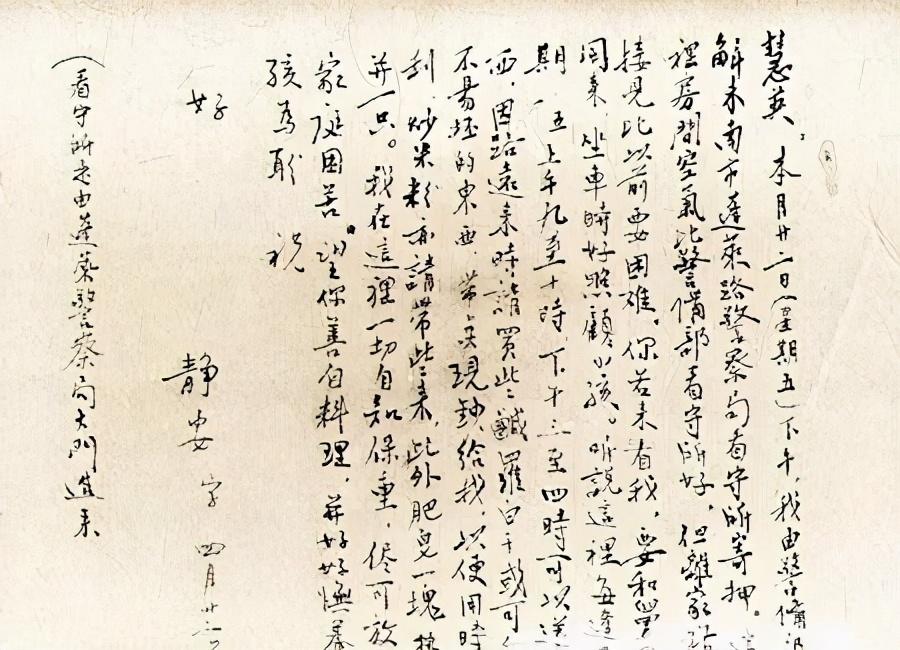 慧英：本月廿二日（星期五）下午，我由警備部
解来南市蓬萊路警察局看守所寄押。這
裡房間空氣比警備部看守所好，但離家
接見比以前要困難。你若来看我，要和
同来，坐車時好照顧小孩。听說這裡每逢
期一、五上午九至十時，下午三至四時可以送
西，因路遠来時請買些鹹羅白干或可
不易壞的東西，带矣現鈔給我，以便用時
刮，炒米粉亦請带些来，此外肥皂一塊
并一只。我在這裡一切自知保重，儘可放
家庭困苦，望你善自料理，并好好撫養
孩為盼 祝
好
静安 字 四月廿
（看守所走由蓬萊警察局大門進来